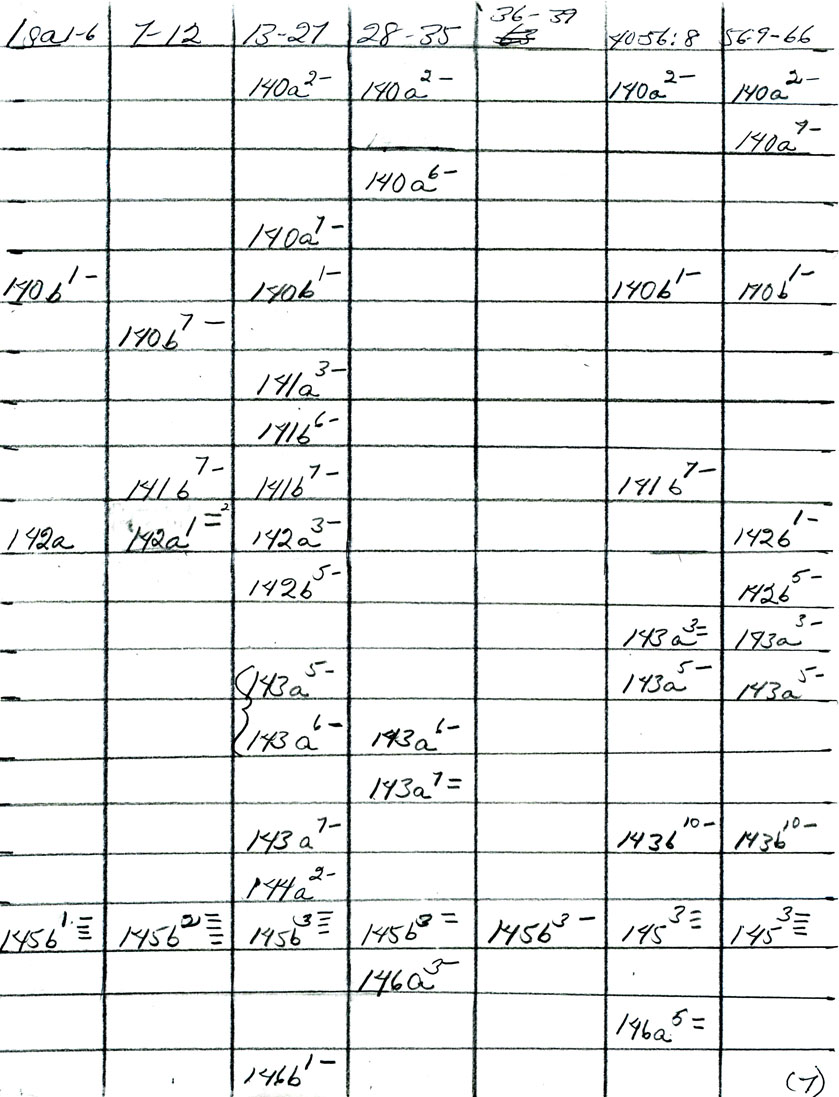 Isa 1-6 7-12 13-27 28-35 36-39 40-56:8 56:9-66
140a²⁻ 140a²⁻ 140a²⁻ 140a²⁻
140a⁷⁻
140a⁶⁻
140a⁷⁻
140b¹⁻ 140b¹⁻ 140b¹⁻ 140b¹⁻
140b⁷⁻
141a³⁻
141b⁶⁻
141b⁷⁻ 141b⁷⁻ 141b⁷⁻
142a 142a¹⁼² 142a³⁻ 142b¹⁻
142b⁵⁻ 142b⁵⁻
143a³⁼ 143a³⁻
143a⁵⁻ 143a⁵⁻ 143a⁵⁻
143a⁶⁻ 143a⁶⁻
143a⁷⁼
143a⁷⁻ 143b¹⁰⁻ 143b¹⁰⁻
144a²⁻
145b¹≡ 145b²≣ 145b³≡ 145b³⁼ 145b³⁻ 145³≡ 145³≡
146a³⁻
146a⁵⁼
146b¹⁻ (7)